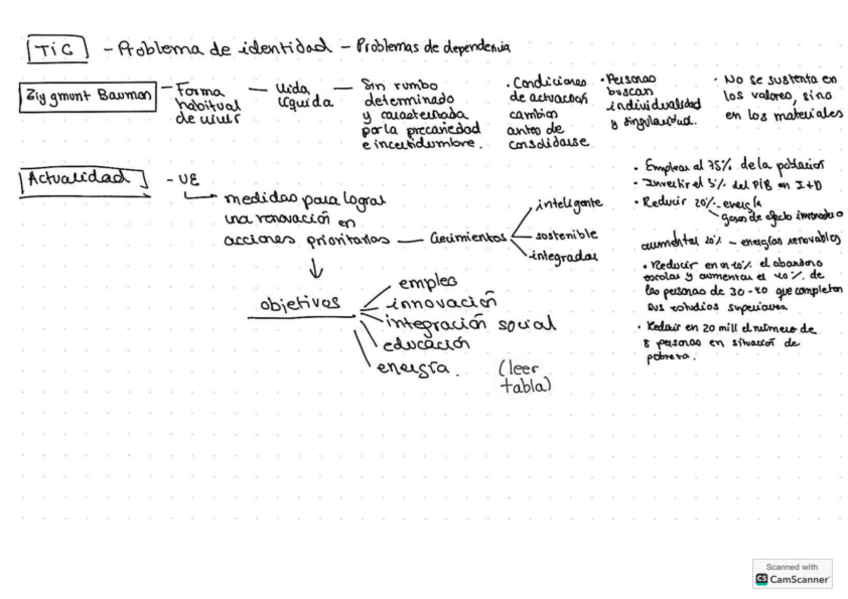 TIC - Problema de identidad - Problemas de dependencia
Ziygmunt Bauman - Forma habitual de vivir - Vida líquida - Sin rumbo determinado y caracterizada por la precariedad e incertidumbre.
· Condiciones de actuación cambian antes de consolidarse
· Personas buscan individualidad y singularidad.
· No se sustenta en los valores, sino en los materiales
Actualidad - UE
medidas para lograr
una renovación en
acciones prioritarias - Crecimientos
inteligente
sostenible
integrador
objetivos
empleo
innovación
integración social
educación
energía. (leer tabla)
· Emplear al 75% de la población
· Invertir el 5% del PIB en I+D
· Reducir 20% energía
gases de efecto invernadero
aumentar 20% - energías renovables
· Reducir en un 10% el abandono
escolar y aumentar el 40% de
las personas de 30-40 que completen
sus estudios superiores
· Reducir en 20 mill el número de
personas en situación de
pobreza.
Scanned with
CS CamScanner